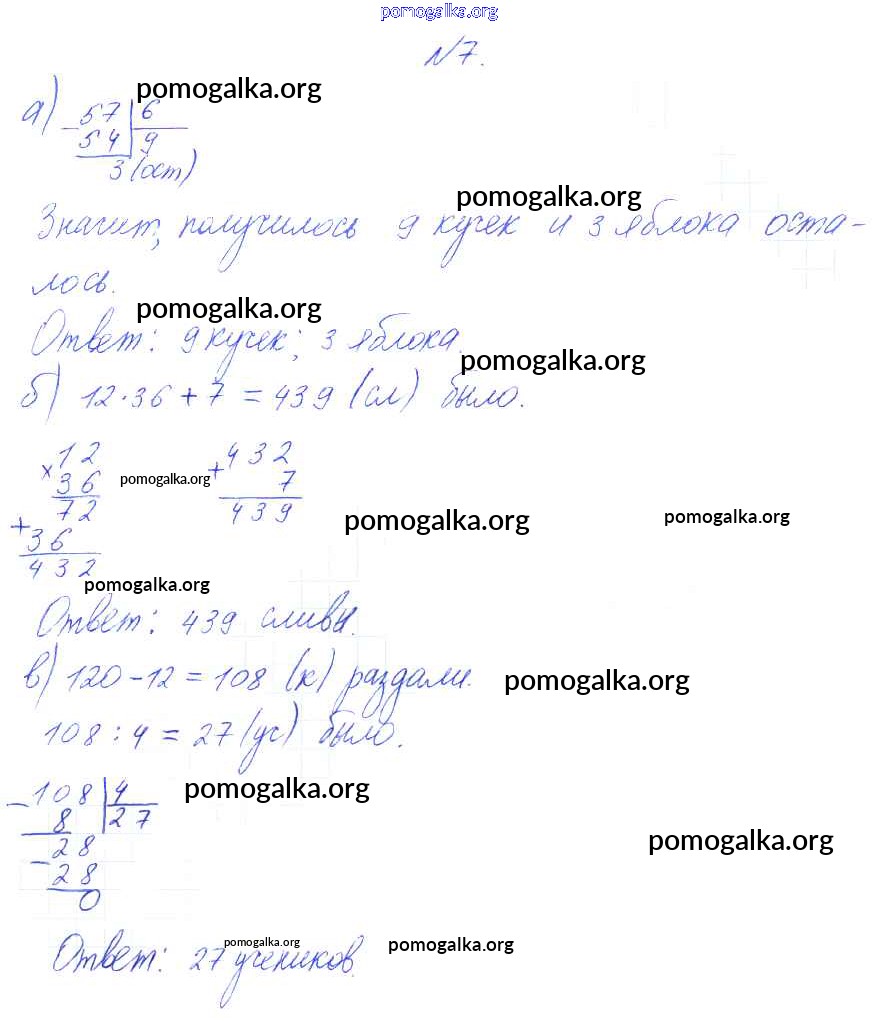 pomogalka.org
N7.
а) 57 | 6 pomogalka.org
- 54 | 9
3 (ост)
pomogalka.org
Значит, получилось 9 кучек и 3 яблока оста-
лось.
pomogalka.org
Ответ: 9 кучек; 3 яблока.
pomogalka.org
б) 12·36 + 7 = 439 (сл) было.
× 12 + 432
36 7
72 439
+ 36
432
pomogalka.org
pomogalka.org pomogalka.org
pomogalka.org
Ответ: 439 сливы.
в) 120 - 12 = 108 (к) раздали. pomogalka.org
108 : 4 = 27 (уч) было.
- 108 | 4 pomogalka.org
8 | 27
- 28 pomogalka.org
28
0
pomogalka.org pomogalka.org
Ответ: 27 учеников.